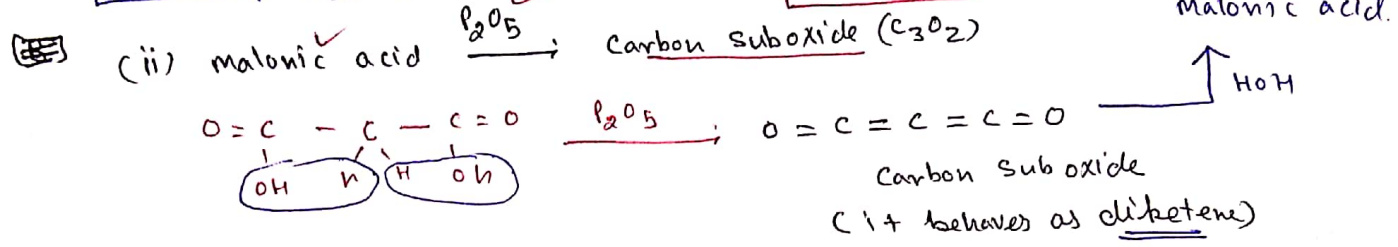 malonic acid.
(ii) malonic acid P₂O₅ → Carbon suboxide (C₃O₂)
↑ HOH
O = C - C - C = O P₂O₅ → O = C = C = C = O
OH H H OH
Carbon sub oxide
(it behaves as diketene)